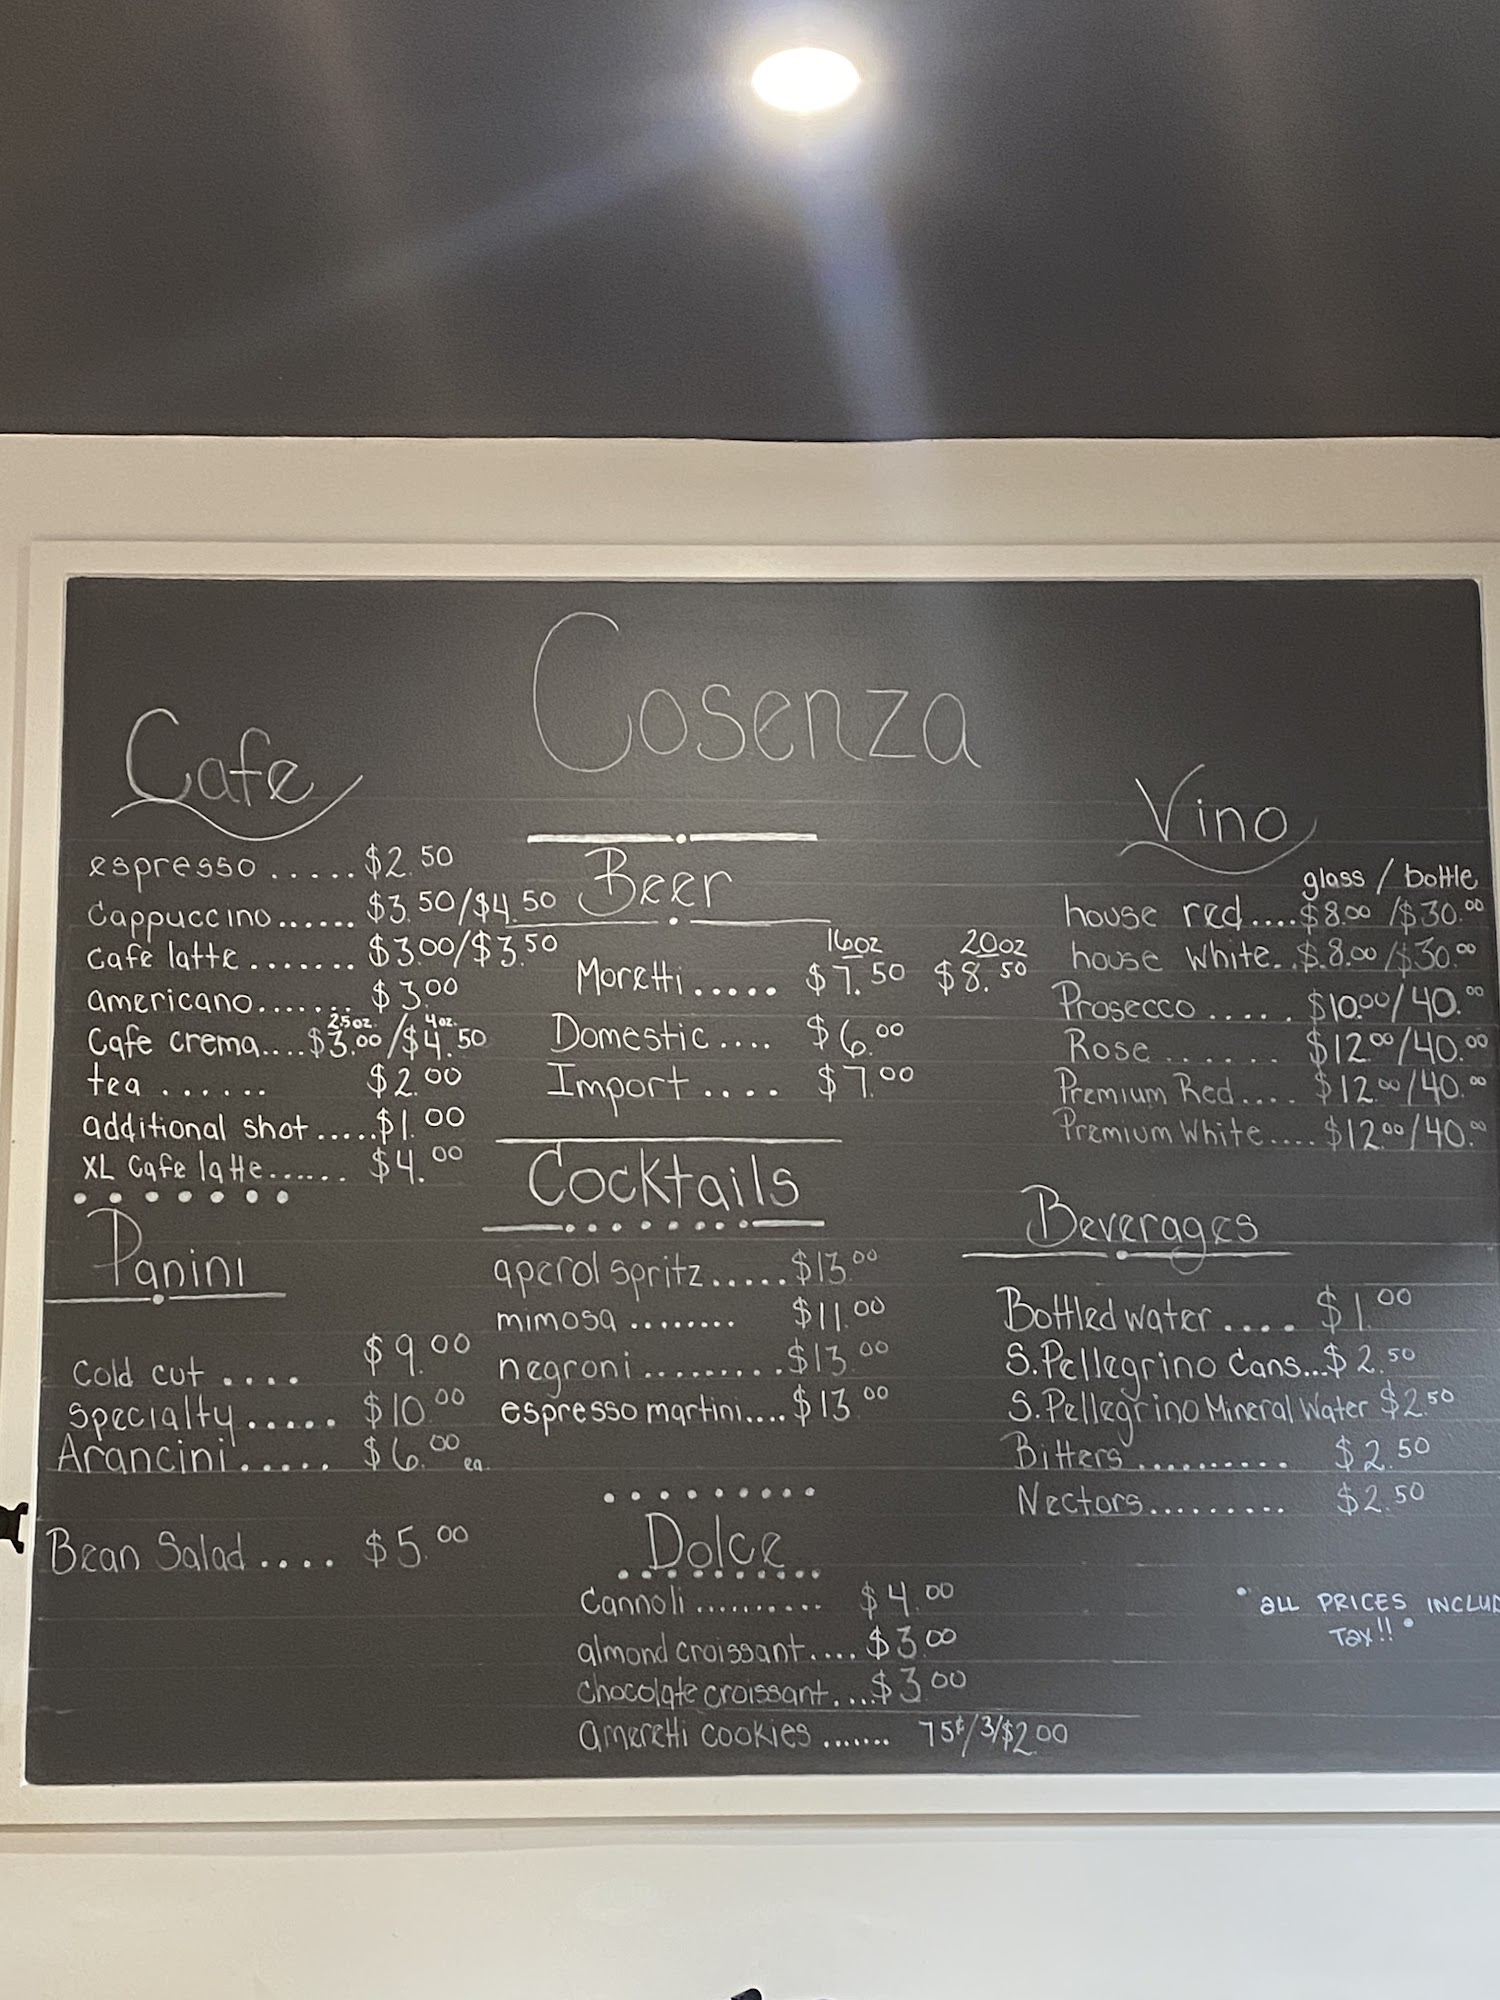 Cosenza
Cafe
espresso ..... $2.50
Cappuccino...... $3.50/$4.50
Cafe latte ....... $3.00/$3.50
americano....... $3.00
2.5oz. 4oz.
Cafe crema....$3.00/$4.50
tea ...... $2.00
additional shot.....$1.00
XL Cafe latte...... $4.00
Panini
Cold cut .... $9.00
Specialty..... $10.00
Arancini..... $6.00 ea.
Bean Salad .... $5.00
Beer
16oz 20oz
Moretti ..... $7.50 $8.50
Domestic.... $6.00
Import .... $7.00
Cocktails
aperol spritz.....$13.00
mimosa ........ $11.00
negroni.........$13.00
espresso martini....$13.00
Dolce
Cannoli .......... $4.00
almond croissant.... $3.00
chocolate croissant....$3.00
ameretti cookies ....... 75¢/3/$2.00
Vino
glass / bottle
house red....$8.00 /$30.00
house White..$.8.00 /$30.00
Prosecco ..... $10.00/40.00
Rose....... $12.00/40.00
Premium Red.... $12.00/40.00
Premium White.... $12.00/40.00
Beverages
Bottled water .... $1.00
S.Pellegrino Cans...$2.50
S.Pellegrino Mineral Water $2.50
Bitters.......... $2.50
Nectors......... $2.50
• all PRICES INCLUD
Tax!! •